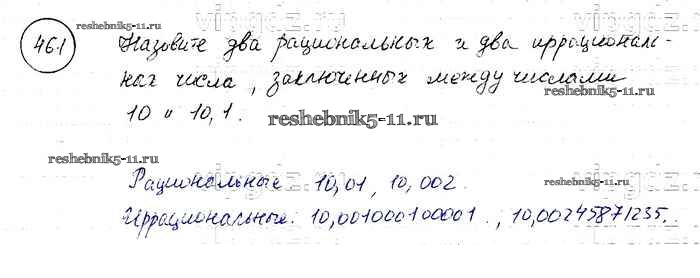 reshebnik5-11.ru
461
Назовите два рациональных и два иррациональ-
ных числа, заключенных между числами
10 и 10,1.
reshebnik5-11.ru
reshebnik5-11.ru
reshebnik5-11.ru
Рациональные 10,01, 10,002.
Иррациональные: 10,001000100001.., 10,00245871235..
reshebnik5-11.ru